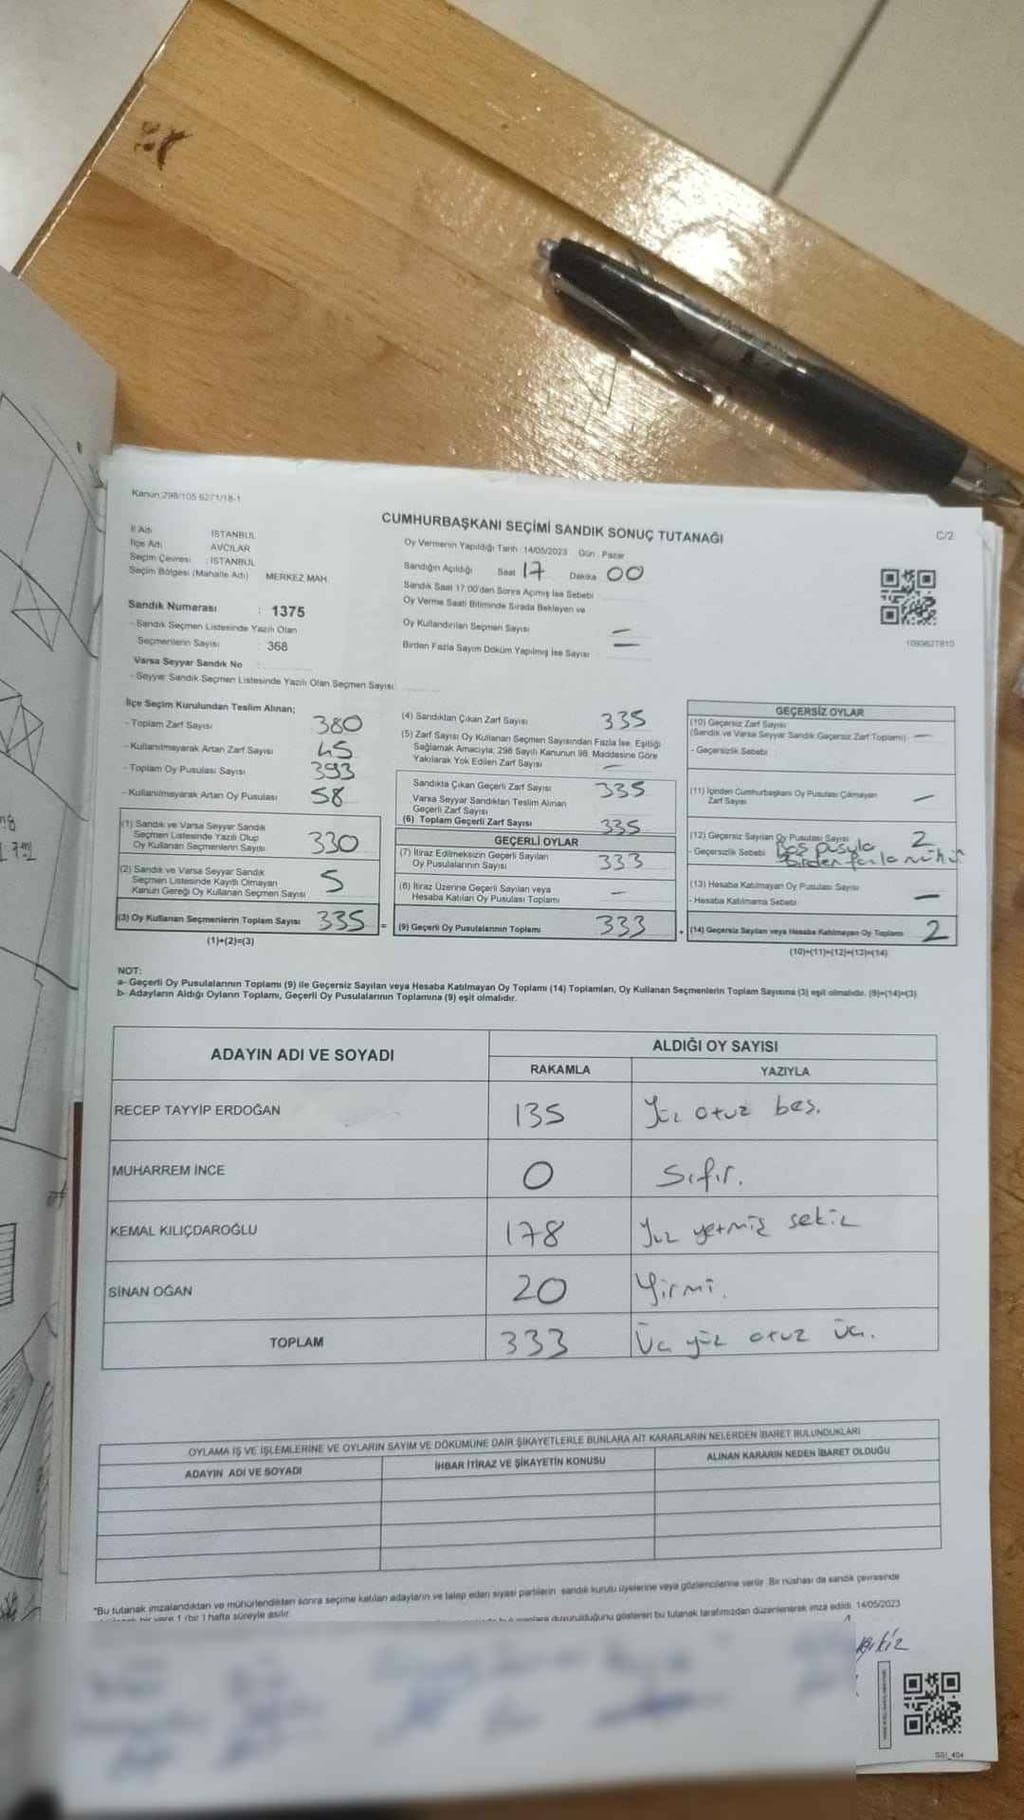 Kanun:298/105 6271/18-1
CUMHURBAŞKANI SEÇİMİ SANDIK SONUÇ TUTANAĞI
C/2
İl Adı : İSTANBUL
İlçe Adı : AVCILAR
Seçim Çevresi : İSTANBUL
Seçim Bölgesi (Mahalle Adı) MERKEZ MAH.
Sandık Numarası : 1375
- Sandık Seçmen Listesinde Yazılı Olan
Seçmenlerin Sayısı : 368
Varsa Seyyar Sandık No :
- Seyyar Sandık Seçmen Listesinde Yazılı Olan Seçmen Sayısı:
Oy Vermenin Yapıldığı Tarih : 14/05/2023 Gün : Pazar
Sandığın Açıldığı Saat 17 Dakika 00
Sandık Saat 17:00'den Sonra Açılmış İse Sebebi
Oy Verme Saati Bitiminde Sırada Bekleyen ve
Oy Kullandırılan Seçmen Sayısı
Birden Fazla Sayım Döküm Yapılmış İse Sayısı
İlçe Seçim Kurulundan Teslim Alınan;
- Toplam Zarf Sayısı 380
- Kullanılmayarak Artan Zarf Sayısı 45
- Toplam Oy Pusulası Sayısı 393
- Kullanılmayarak Artan Oy Pusulası 58
(1) Sandık ve Varsa Seyyar Sandık
Seçmen Listesinde Yazılı Olup
Oy Kullanan Seçmenlerin Sayısı 330
(2) Sandık ve Varsa Seyyar Sandık
Seçmen Listesinde Kayıtlı Olmayan
Kanun Gereği Oy Kullanan Seçmen Sayısı 5
(3) Oy Kullanan Seçmenlerin Toplam Sayısı 335 =
(1)+(2)=(3)
(4) Sandıktan Çıkan Zarf Sayısı 335
(5) Zarf Sayısı Oy Kullanan Seçmen Sayısından Fazla İse, Eşitliği
Sağlamak Amacıyla; 298 Sayılı Kanunun 98. Maddesine Göre
Yakılarak Yok Edilen Zarf Sayısı –
Sandıkta Çıkan Geçerli Zarf Sayısı 335
Varsa Seyyar Sandıktan Teslim Alınan
Geçerli Zarf Sayısı
(6) Toplam Geçerli Zarf Sayısı 335
GEÇERLİ OYLAR
(7) İtiraz Edilmeksizin Geçerli Sayılan
Oy Pusulalarının Sayısı 333
(8) İtiraz Üzerine Geçerli Sayılan veya
Hesaba Katılan Oy Pusulası Toplamı –
(9) Geçerli Oy Pusulalarının Toplamı 333 +
GEÇERSİZ OYLAR
(10) Geçersiz Zarf Sayısı
(Sandık ve Varsa Seyyar Sandık Geçersiz Zarf Toplamı) –
- Geçersizlik Sebebi
(11) İçinden Cumhurbaşkanı Oy Pusulası Çıkmayan
Zarf Sayısı –
(12) Geçersiz Sayılan Oy Pusulası Sayısı 2
- Geçersizlik Sebebi Boş pusula
Birden fazla mühür
(13) Hesaba Katılmayan Oy Pusulası Sayısı
- Hesaba Katılmama Sebebi –
(14) Geçersiz Sayılan veya Hesaba Katılmayan Oy Toplamı 2
(10)+(11)+(12)+(13)=(14)
NOT:
a- Geçerli Oy Pusulalarının Toplamı (9) ile Geçersiz Sayılan veya Hesaba Katılmayan Oy Toplamı (14) Toplamları, Oy Kullanan Seçmenlerin Toplam Sayısına (3) eşit olmalıdır. (9)+(14)=(3)
b- Adayların Aldığı Oyların Toplamı, Geçerli Oy Pusulalarının Toplamına (9) eşit olmalıdır.
ADAYIN ADI VE SOYADI
ALDIĞI OY SAYISI
RAKAMLA YAZIYLA
RECEP TAYYİP ERDOĞAN 135 Yüz otuz beş.
MUHARREM İNCE 0 Sıfır.
KEMAL KILIÇDAROĞLU 178 Yüz yetmiş sekiz
SİNAN OĞAN 20 Yirmi.
TOPLAM 333 Üç yüz otuz üç.
OYLAMA İŞ VE İŞLEMLERİNE VE OYLARIN SAYIM VE DÖKÜMÜNE DAİR ŞİKAYETLERLE BUNLARA AİT KARARLARIN NELERDEN İBARET BULUNDUKLARI
ADAYIN ADI VE SOYADI İHBAR İTİRAZ VE ŞİKAYETİN KONUSU ALINAN KARARIN NEDEN İBARET OLDUĞU
*Bu tutanak imzalandıktan ve mühürlendikten sonra seçime katılan adayların ve talep eden siyasi partilerin sandık kurulu üyelerine veya gözlemcilerine verilir. Bir nüshası da sandık çevresinde
bir yere 1 (bir ) hafta süreyle asılır.
duyurulduğunu gösteren bu tutanak tarafımızdan düzenlenerek imza edildi. 14/05/2023
SSI_404